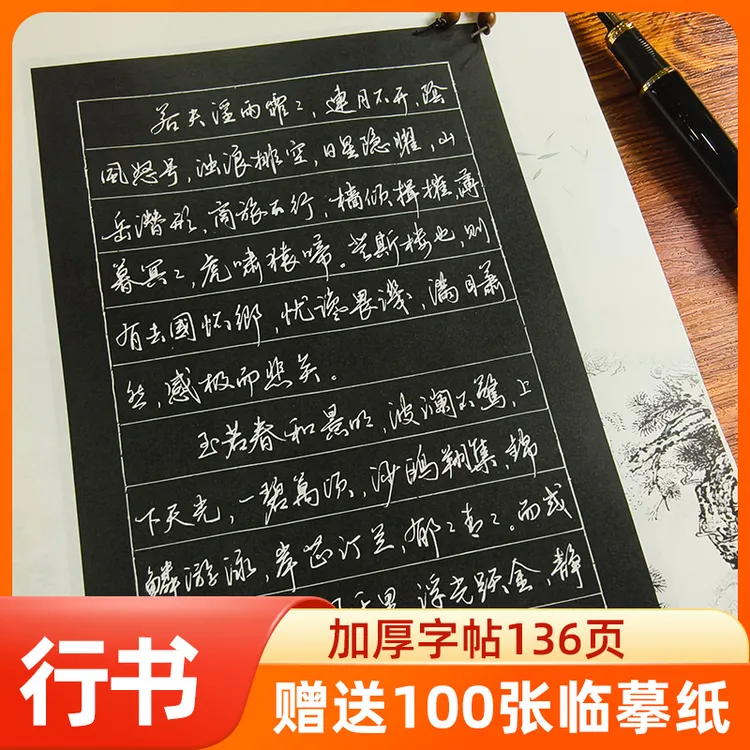 若夫淫雨霏〻，連月不开，陰
風怒号，浊浪排空，日星隐耀，山
岳潜形，商旅不行，樯倾楫摧，薄
暮冥〻，虎啸猿啼。登斯楼也，则
有去國怀鄉，忧谗畏譏，满目萧
然，感极而悲矣。
至若春和景明，波澜不驚，上
下天光，一碧萬顷，沙鸥翔集，锦
鳞游泳，岸芷汀兰，郁〻青〻。而或
浮光跃金，静
行书
加厚字帖136页
赠送100张临摹纸